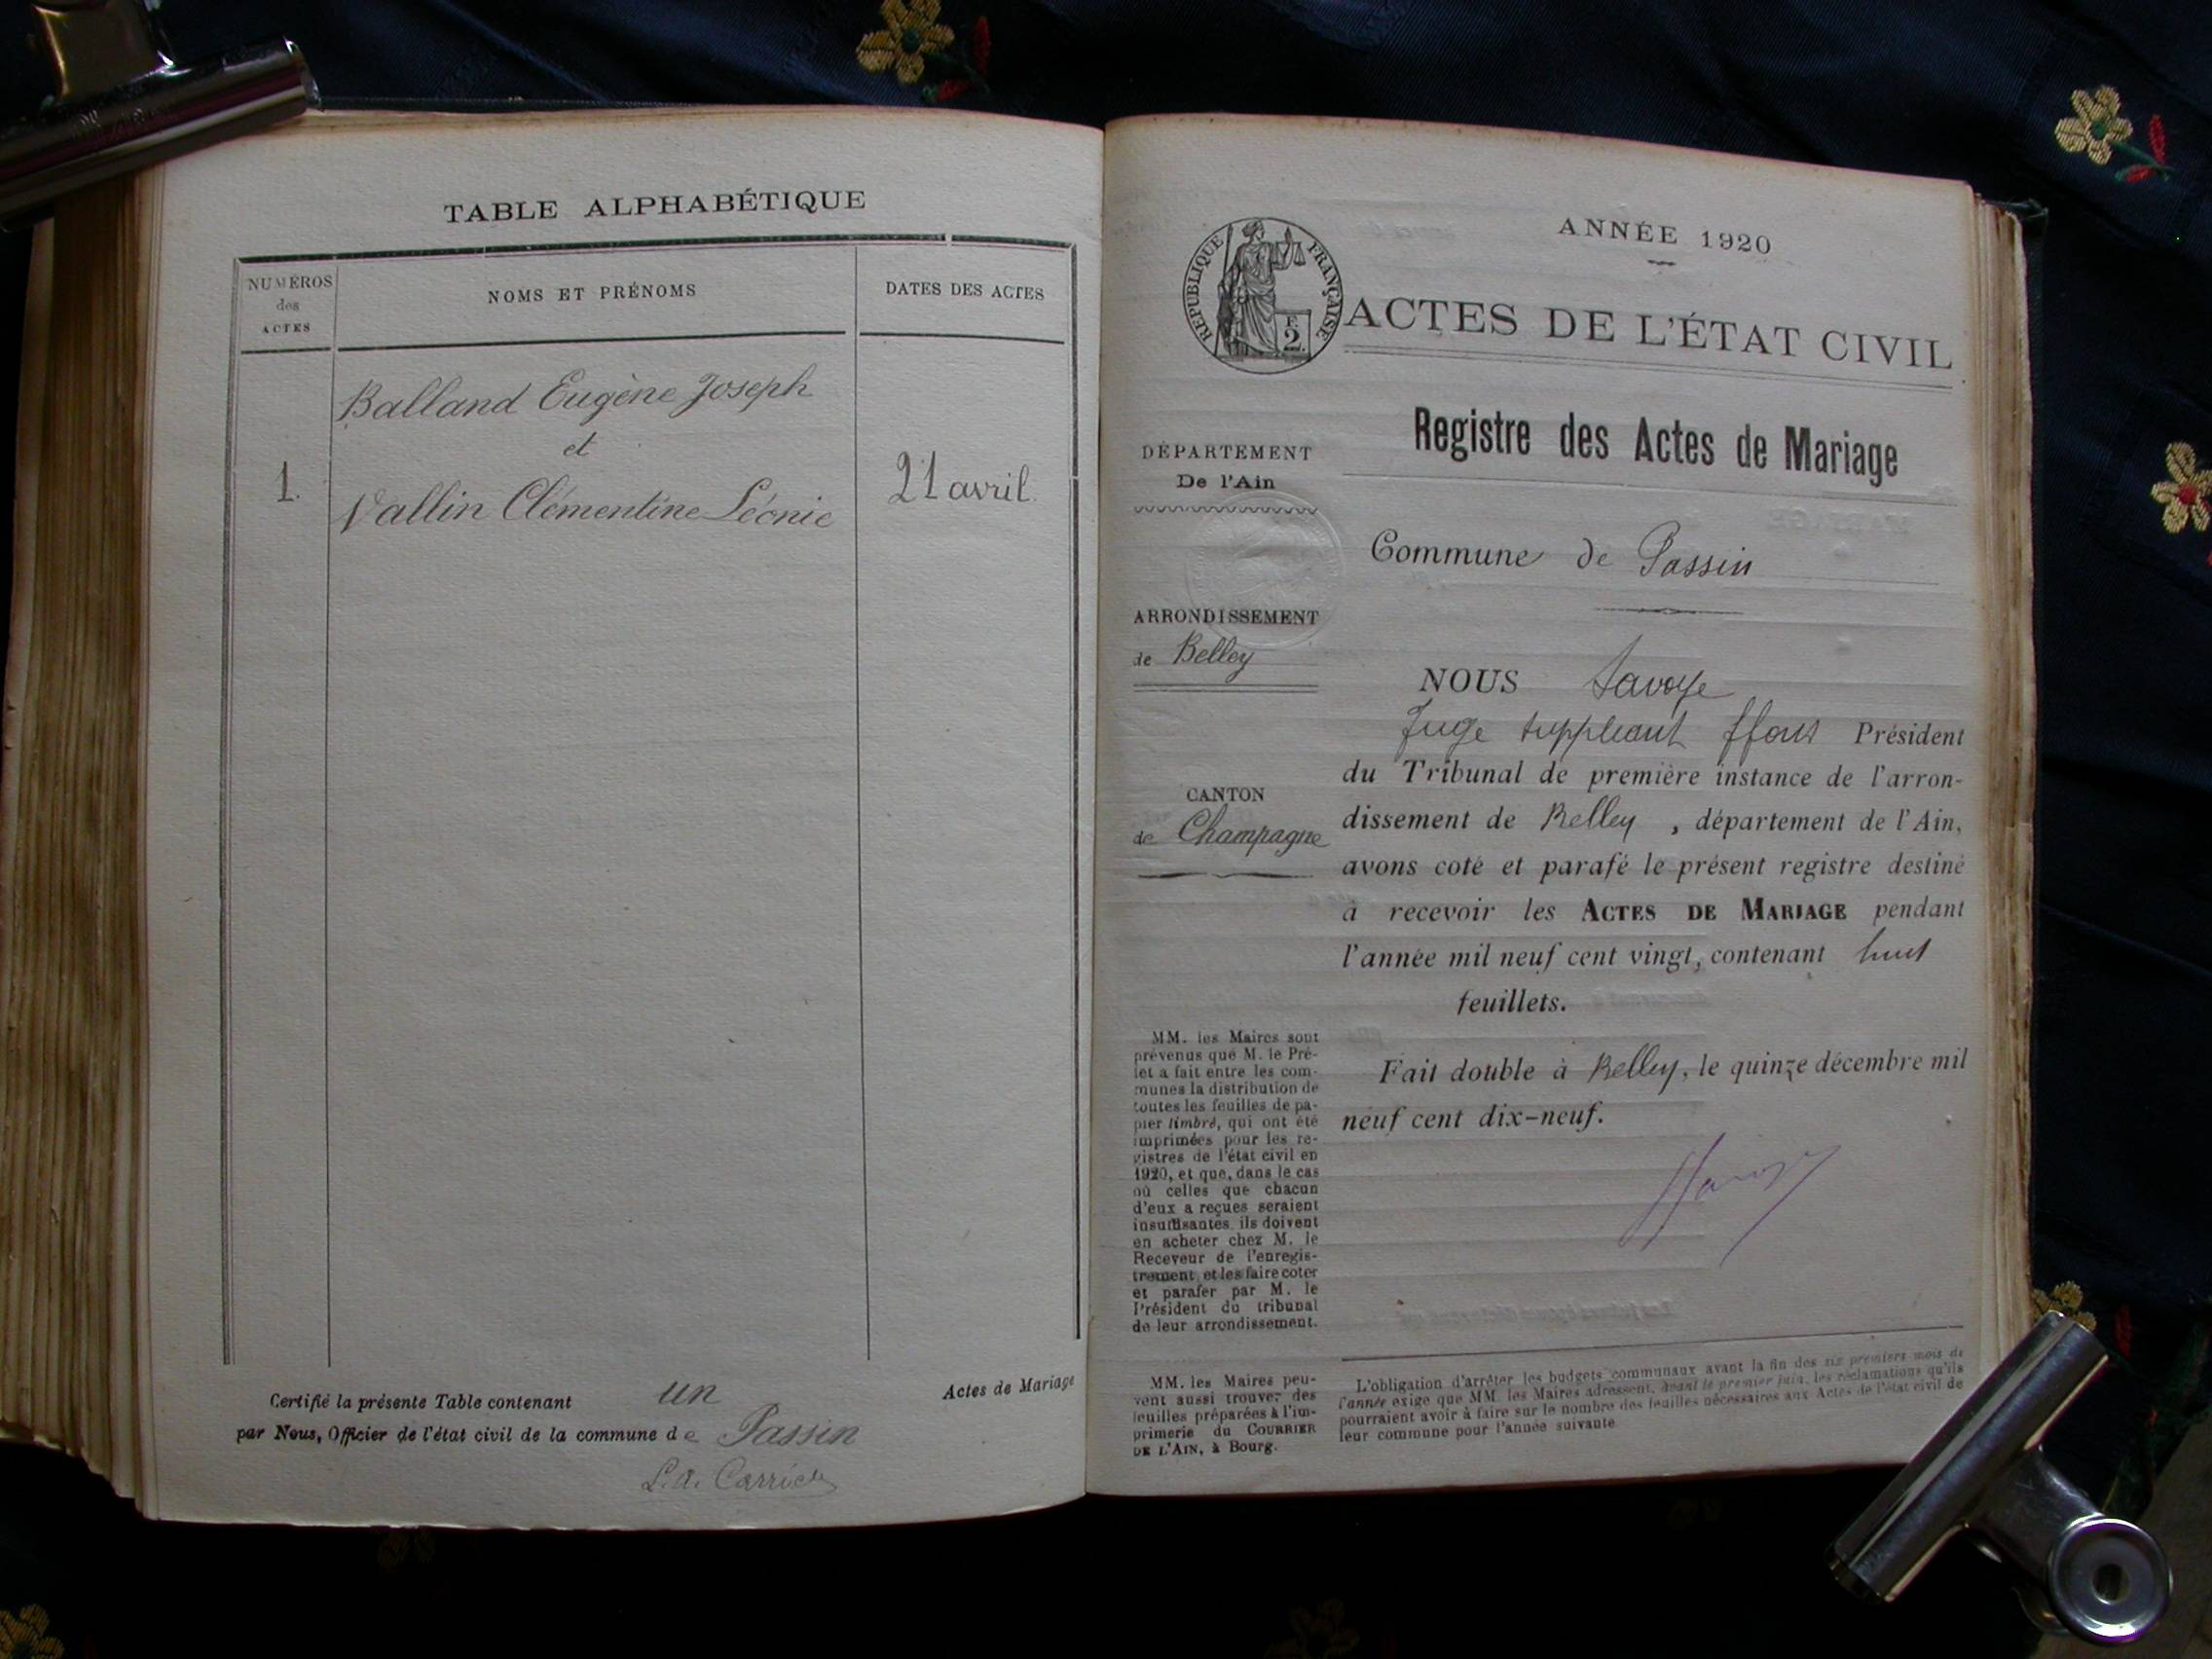 TABLE ALPHABÉTIQUE
NUMÉROS
des
ACTES
NOMS ET PRÉNOMS
DATES DES ACTES
Balland Eugène Joseph
et
1.
Vallin Clémentine Léonie
21 avril.
Certifié la présente Table contenant un Actes de Mariage
par Nous, Officier de l'état civil de la commune de Passin
ANNÉE 1920
RÉPUBLIQUE FRANÇAISE
F.
2.
ACTES DE L'ÉTAT CIVIL
DÉPARTEMENT
De l'Ain
ARRONDISSEMENT
de Belley
CANTON
de Champagne
MM. les Maires sont
prévenus que M. le Pré-
fet a fait entre les com-
munes la distribution de
toutes les feuilles de pa-
pier timbré, qui ont été
imprimées pour les re-
gistres de l'état civil en
1920, et que, dans le cas
où celles que chacun
d'eux a reçues seraient
insuffisantes, ils doivent
en acheter chez M. le
Receveur de l'enregis-
trement, et les faire coter
et parafer par M. le
Président du tribunal
de leur arrondissement.
MM. les Maires peu-
vent aussi trouver des
feuilles préparées à l'im-
primerie du COURRIER
DE L'AIN, à Bourg.
Registre des Actes de Mariage
Commune de Passin
NOUS Savoye
Juge suppléant ffons Président
du Tribunal de première instance de l'arron-
dissement de Belley, département de l'Ain,
avons coté et parafé le présent registre destiné
à recevoir les ACTES DE MARIAGE pendant
l'année mil neuf cent vingt, contenant huit
feuillets.
Fait double à Belley, le quinze décembre mil
neuf cent dix-neuf.
L'obligation d'arrêter les budgets communaux avant la fin des six premiers mois de
l'année exige que MM. les Maires adressent, avant le premier juin, les réclamations qu'ils
pourraient avoir à faire sur le nombre des feuilles nécessaires aux Actes de l'état civil de
leur commune pour l'année suivante